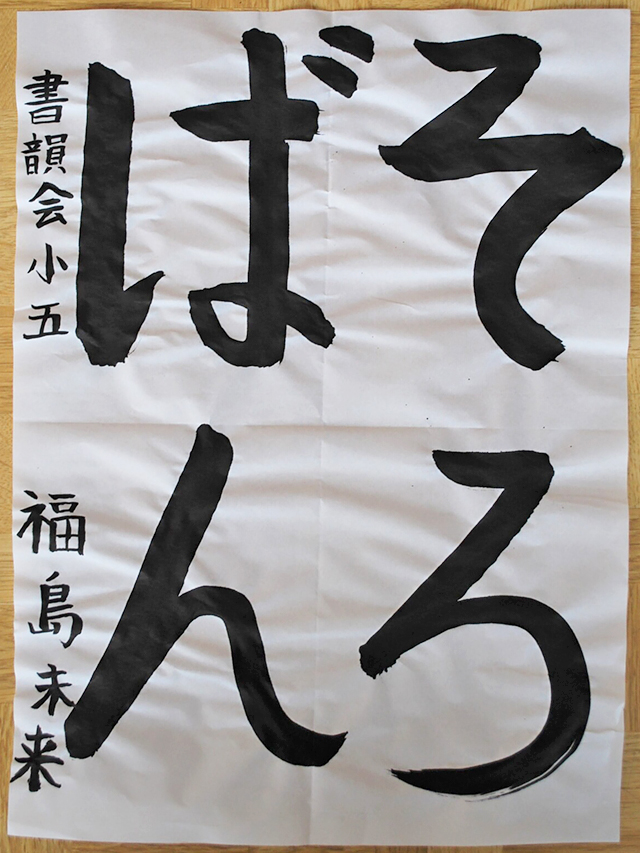 そろ
ばん
書韻会小五
福島未来